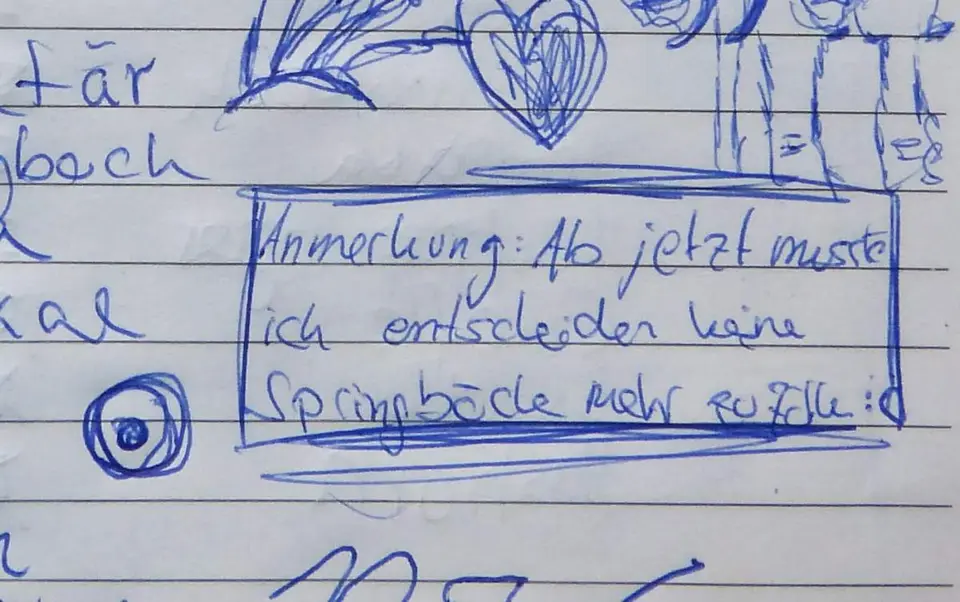 für
gbock
Anmerkung: Ab jetzt musste
ich entscheiden keine
Springböcke mehr zu :d